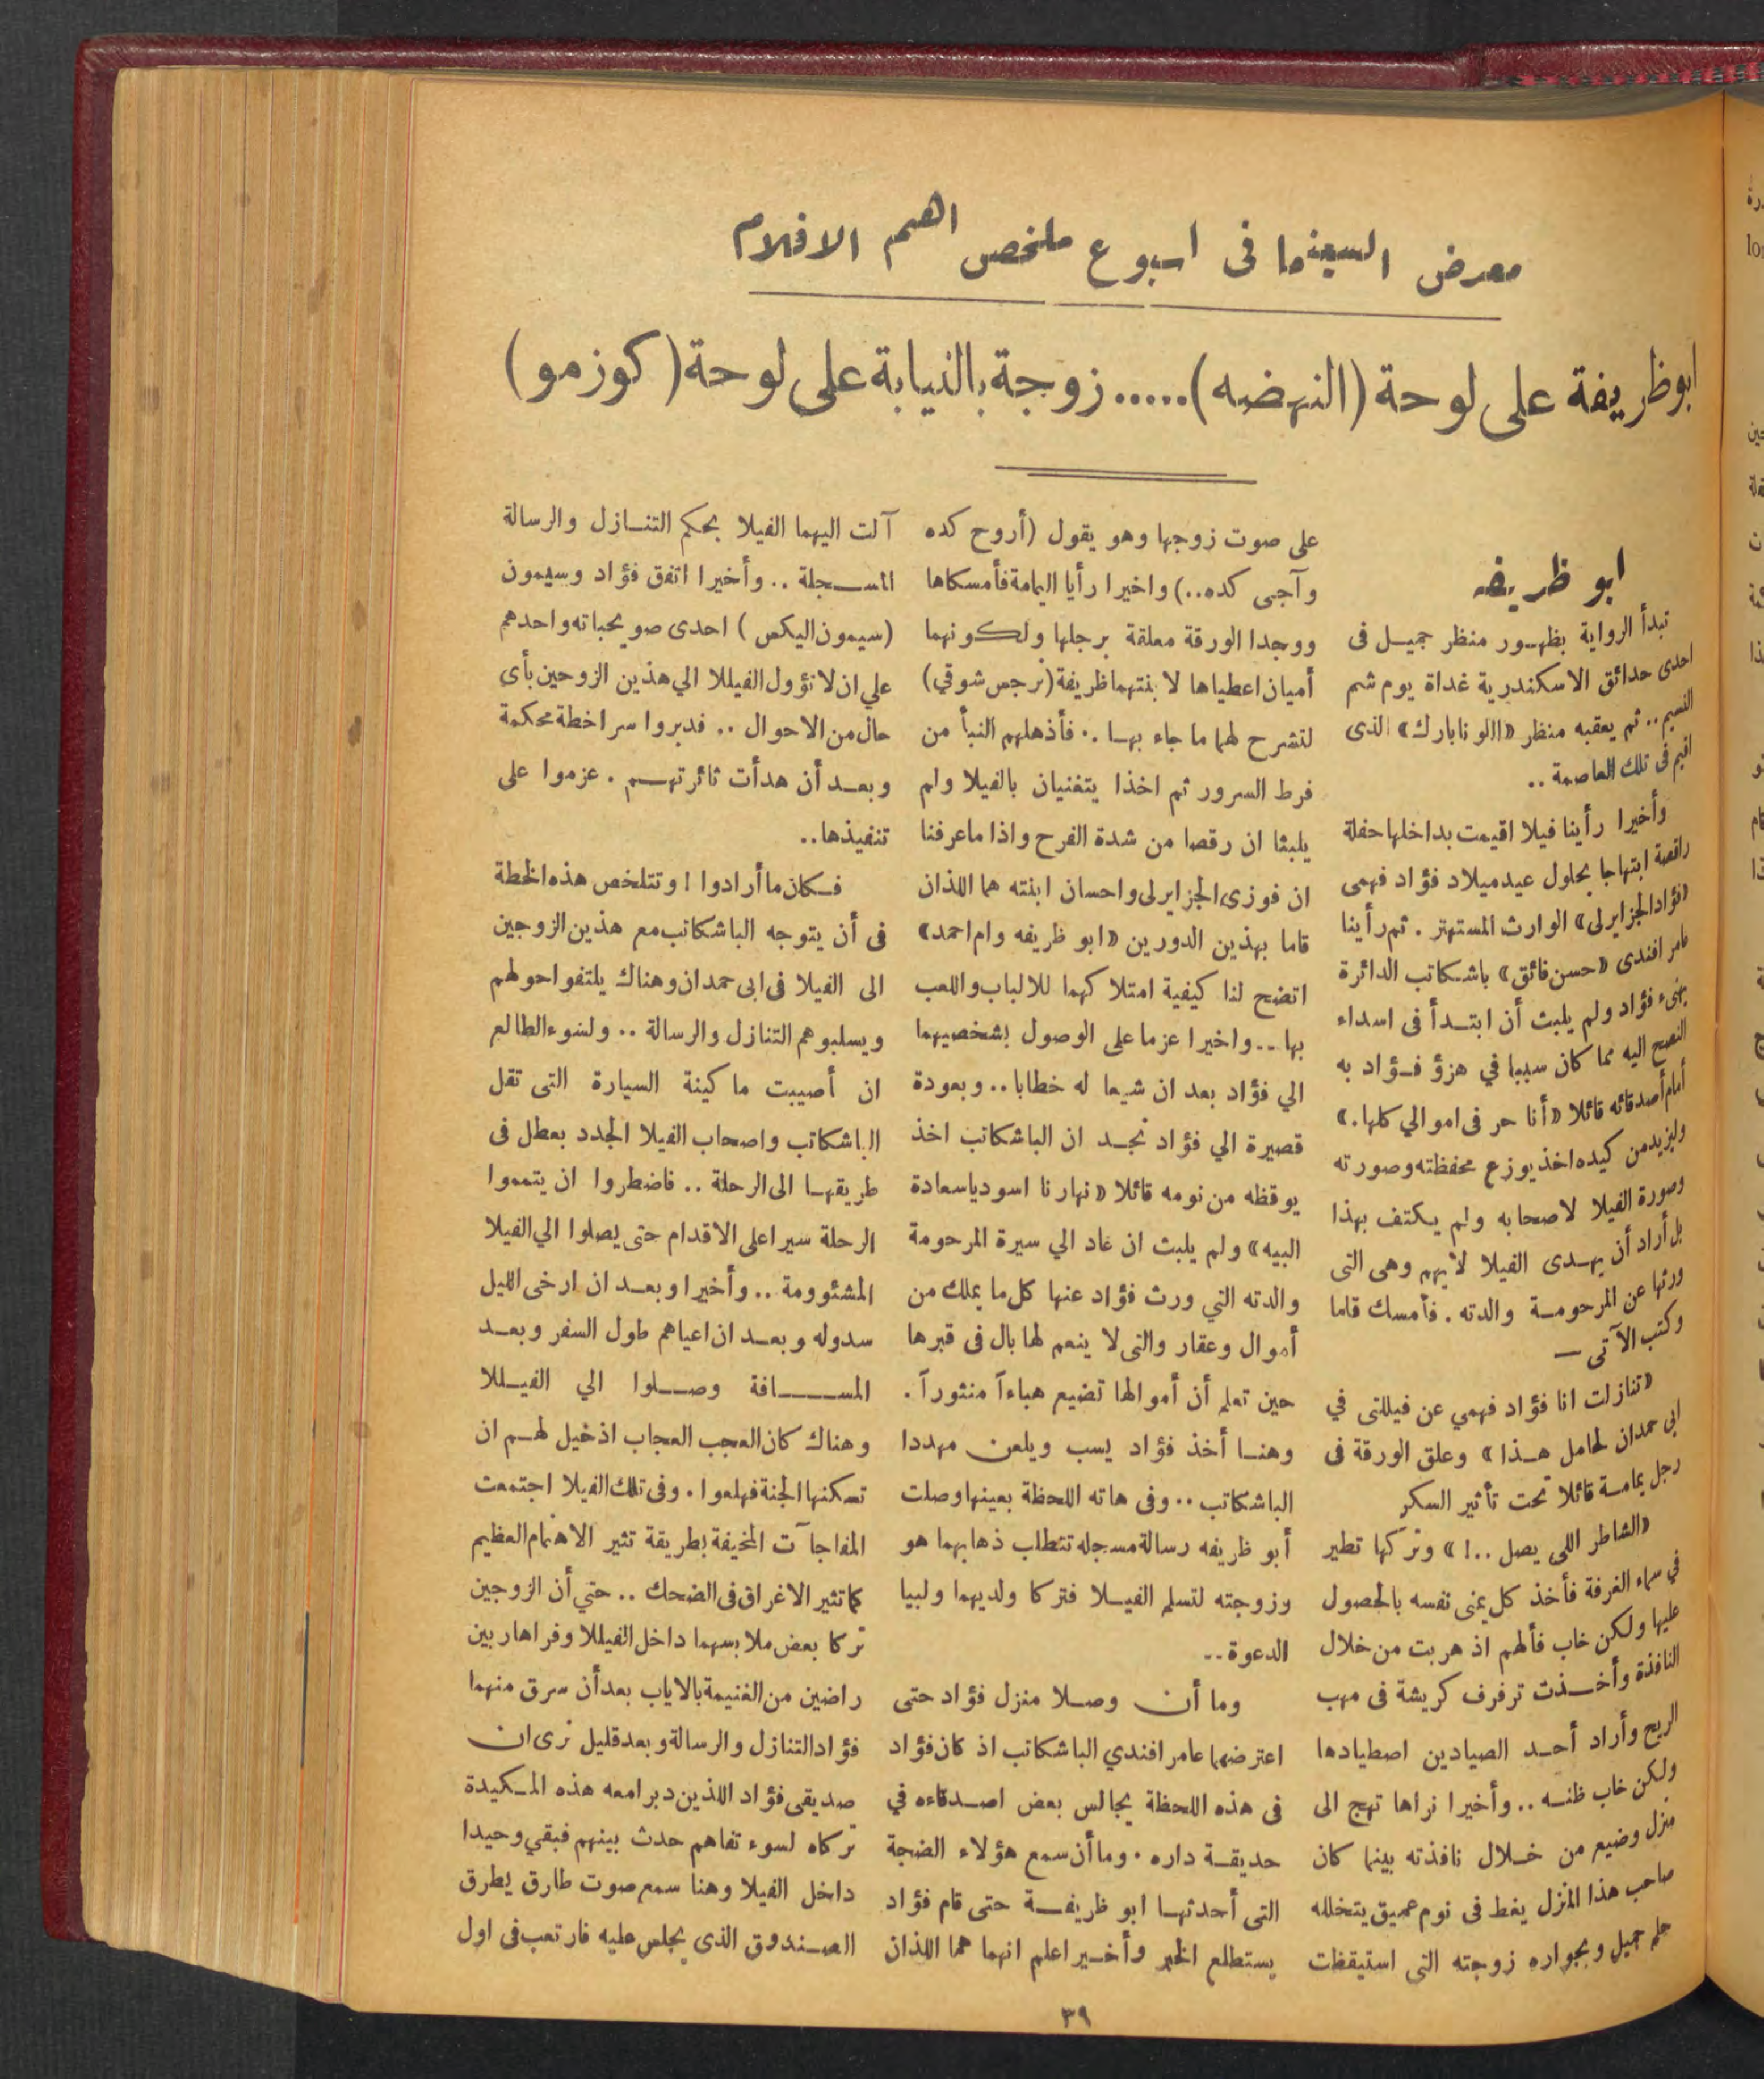 معرض السينما فى اسبوع ملخص اهم الافلام
ابوظريفة على لوحة (النهضه)..... زوجة بالنيابة على لوحة (كوزمو)
ابو ظريفه
تبدأ الرواية بظهور منظر جميل فى
احدى حدائق الاسكندرية غداة يوم شم
النسيم .. ثم يعقبه منظر «اللونابارك» الذى
اقيم فى تلك العاصمة ..
وأخيرا رأينا فيلا اقيمت بداخلها حفلة
راقصة ابتهاجا بحلول عيد ميلاد فؤاد فهمى
«فؤاد الجزايرلى» الوارث المستهتر . ثم رأينا
عامر افندى «حسن فائق» باشكاتب الدائرة
يهنىء فؤاد ولم يلبث أن ابتدأ فى اسداء
النصح اليه مما كان سببا في هزؤ فؤاد به
أمام أصدقائه قائلا «أنا حر فى اموالي كلها .»
وليزيد من كيده اخذ يوزع محفظته وصورته
وصورة الفيلا لاصحابه ولم يكتف بهذا
بل أراد أن يهدى الفيلا لأيهم وهى التى
ورثها عن المرحومة والدته . فأمسك قلما
وكتب الآتى —
«تنازلت انا فؤاد فهمي عن فيللتى في
ابى حمدان لحامل هذا» وعلق الورقة فى
رجل يمامة قائلا تحت تأثير السكر
«الشاطر اللى يصل ..!» وتركها تطير
في سماء الغرفة فأخذ كل يمنى نفسه بالحصول
عليها ولكن خاب فألهم اذ هربت من خلال
النافذة وأخذت ترفرف كريشة فى مهب
الريح وأراد أحد الصيادين اصطيادها
ولكن خاب ظنه .. وأخيرا نراها تهج الى
منزل وضيع من خلال نافذته بينما كان
صاحب هذا المنزل يغط فى نوم عميق يتخلله
حلم جميل وبجواره زوجته التى استيقظت
على صوت زوجها وهو يقول (أروح كده
وآجى كده ..) واخيرا رأيا اليمامة فأمسكاها
ووجدا الورقة معلقة برجلها ولكونهما
أميان اعطياها لابنتهما ظريفة (نرجس شوقي)
لتشرح لهما ما جاء بها .. فأذهلهم النبأ من
فرط السرور ثم اخذا يتغنيان بالفيلا ولم
يلبثا ان رقصا من شدة الفرح واذا ماعرفنا
ان فوزى الجزايرلى واحسان ابنته هما اللذان
قاما بهذين الدورين «ابو ظريفه وام احمد»
اتضح لنا كيفية امتلاكهما للالباب واللعب
بها .. واخيرا عزما على الوصول بشخصيهما
الي فؤاد بعد ان شيعا له خطابا .. وبعودة
قصيرة الي فؤاد نجد ان الباشكاتب اخذ
يوقظه من نومه قائلا «نهارنا اسود ياسعادة
البيه» ولم يلبث ان عاد الي سيرة المرحومة
والدته التي ورث فؤاد عنها كل ما يملك من
أموال وعقار والتى لا ينعم لها بال فى قبرها
حين تعلم أن أموالها تضيع هباءآ منثورآ .
وهنا أخذ فؤاد يسب ويلعن مهددا
الباشكاتب .. وفى هاته اللحظة بعينها وصلت
أبو ظريفه رسالة مسجله تتطلب ذهابهما هو
وزوجته لتسلم الفيلا فتركا ولديهما ولبيا
الدعوة ..
وما أن وصلا منزل فؤاد حتى
اعترضهما عامر افندي الباشكاتب اذ كان فؤاد
فى هذه اللحظة يجالس بعض اصدقاءه في
حديقة داره . وما أن سمع هؤلاء الضجة
التى أحدثها ابو ظريفة حتى قام فؤاد
يستطلع الخبر وأخيرا علم انهما هما اللذان
آلت اليهما الفيلا بحكم التنازل والرسالة
المسجلة .. وأخيرا اتفق فؤاد وسيمون
(سيمون اليكس) احدى صويحباته واحدهم
علي ان لا تؤول الفيللا الي هذين الزوجين بأى
حال من الاحوال .. فدبروا سرا خطة محكمة
وبعد أن هدأت ثائرتهم . عزموا على
تنفيذها ..
فكان ما أرادوا ! وتتلخص هذه الخطة
فى أن يتوجه الباشكاتب مع هذين الزوجين
الى الفيلا فى ابى حمدان وهناك يلتفوا حولهم
ويسلبوهم التنازل والرسالة .. ولسوء الطالع
ان أصيبت ماكينة السيارة التى تقل
الباشكاتب واصحاب الفيلا الجدد بعطل فى
طريقها الى الرحلة .. فاضطروا ان يتمموا
الرحلة سيرا على الاقدام حتى يصلوا الي الفيلا
المشئوومة .. وأخيرا وبعد ان ارخى الليل
سدوله وبعد ان اعياهم طول السفر وبعد
المسافة وصلوا الي الفيللا
وهناك كان العجب العجاب اذ خيل لهم ان
تسكنها الجنة فهلعوا . وفى تلك الفيلا اجتمعت
المفاجآت المخيفة بطريقة تثير الاهتمام العظيم
كما تثير الاغراق فى الضحك .. حتي أن الزوجين
تركا بعض ملابسهما داخل الفيللا وفرا هاربين
راضين من الغنيمة بالاياب بعد أن سرق منهما
فؤاد التنازل والرسالة وبعد قليل نرى ان
صديقى فؤاد اللذين دبرا معه هذه المكيدة
تركاه لسوء تفاهم حدث بينهم فبقي وحيدا
داخل الفيلا وهنا سمع صوت طارق يطرق
الصندوق الذي يجلس عليه فارتعب فى اول
٣٩